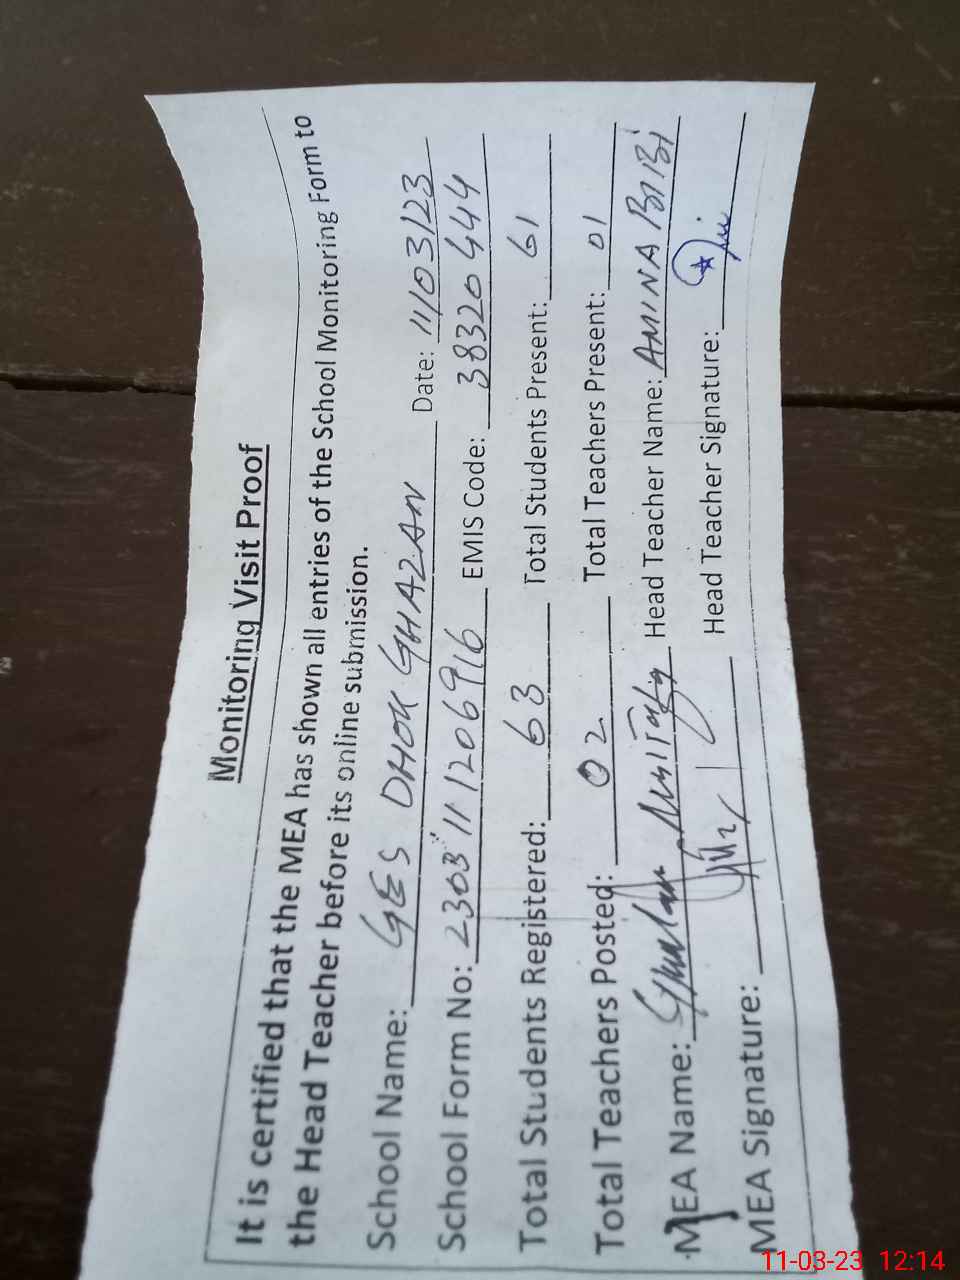 Monitoring Visit Proof
It is certified that the MEA has shown all entries of the School Monitoring Form to
the Head Teacher before its online submission.
School Name: GES DHOK GHAZAN Date: 11/03/23
School Form No: 2303111206916 EMIS Code: 38320444
Total Students Registered: 63 Total Students Present: 61
Total Teachers Posted: 02 Total Teachers Present: 01
MEA Name: Ghulam Head Teacher Name: AMINA BIBI
MEA Signature: Head Teacher Signature:
11-03-23 12:14